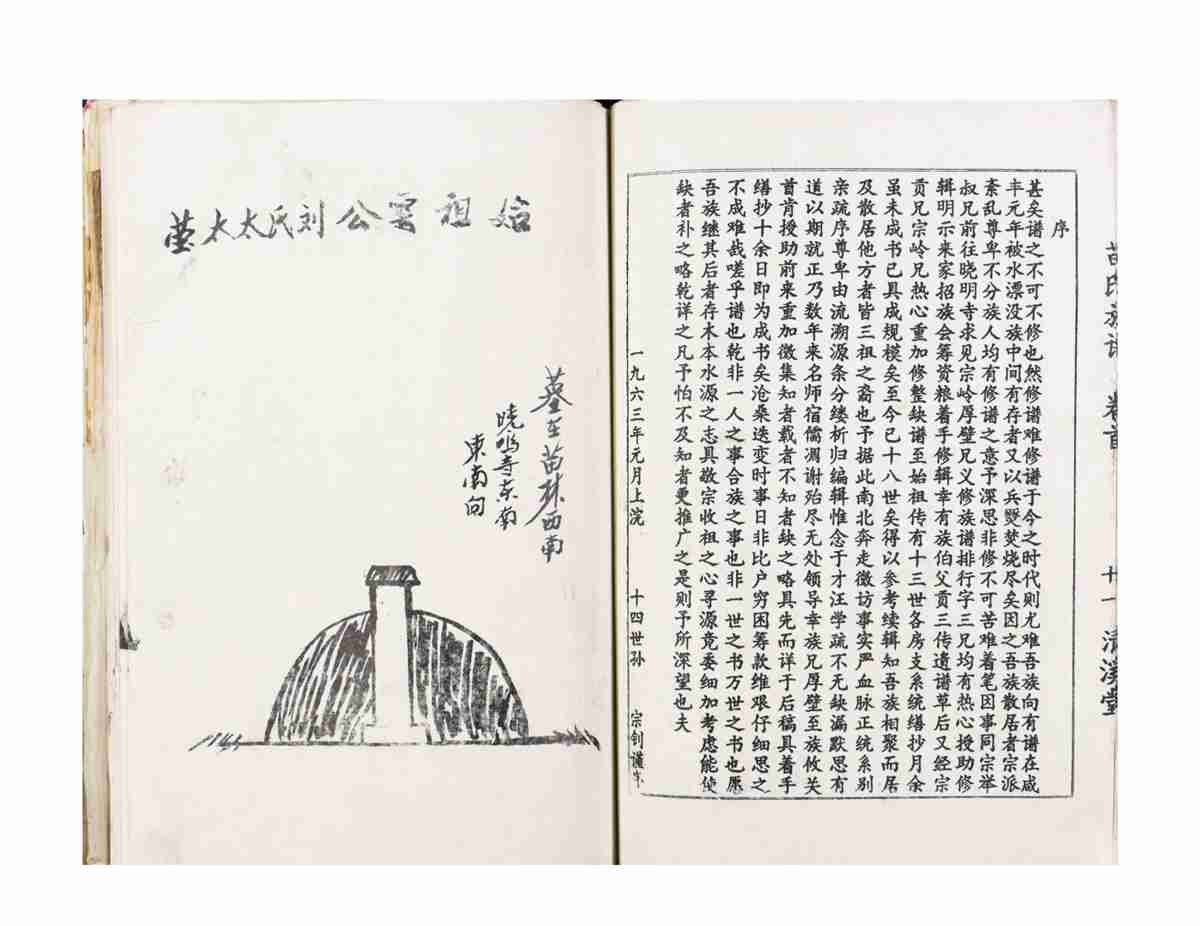 序
甚矣谱之不可不修也然修谱难修谱于今之时代则尤难吾族向有谱在咸
丰元年被水漂没族中间有存者又以兵燹焚烧尽矣因之吾族散居者宗派
紊乱尊卑不分族人均有修谱之意予深思非修不可苦难着笔因事同宗举
叔兄前往晓明寺求见宗岭厚壁兄义修族谱排行字三兄均有热心授助修
辑明示来家招族会筹资粮着手修辑幸有族伯父贡三传遗谱草后又经宗
贡兄宗岭兄热心重加修整缺谱至始祖传有十三世各房支系统缮抄月余
虽未成书已具成规模矣至今已十八世矣得以参考续辑知吾族相聚而居
及散居他方者皆三祖之裔也予据此南北奔走徵访事实严血脉正统系别
亲疏序尊卑由流溯源条分缕析归编辑惟念于才汪学疏不无缺漏默思有
道以期就正乃数年来名师宿儒凋谢殆尽无处领导幸族兄厚壁至族攸关
首肯授助前来重加徵集知者载者不知者缺之略具先而详于后稿具着手
缮抄十余日即为成书矣沧桑迭变时事日非比户穷困筹款维艰仔细思之
不成难哉嗟乎谱也乾非一人之事合族之事也非一世之书万世之书也愿
吾族继其后者存木本水源之志具敬宗收祖之心寻源竟委细加考虑能使
缺者补之略乾详之凡予怕不及知者更推广之是则予所深望也夫
一九六三年元月上浣 十四世孙 宗钊谨
始祖雲公刘氏太太茔
墓在苗林西南
晓鸣寺东南
東南向
苗氏族谱 卷首 廿一 清溪堂